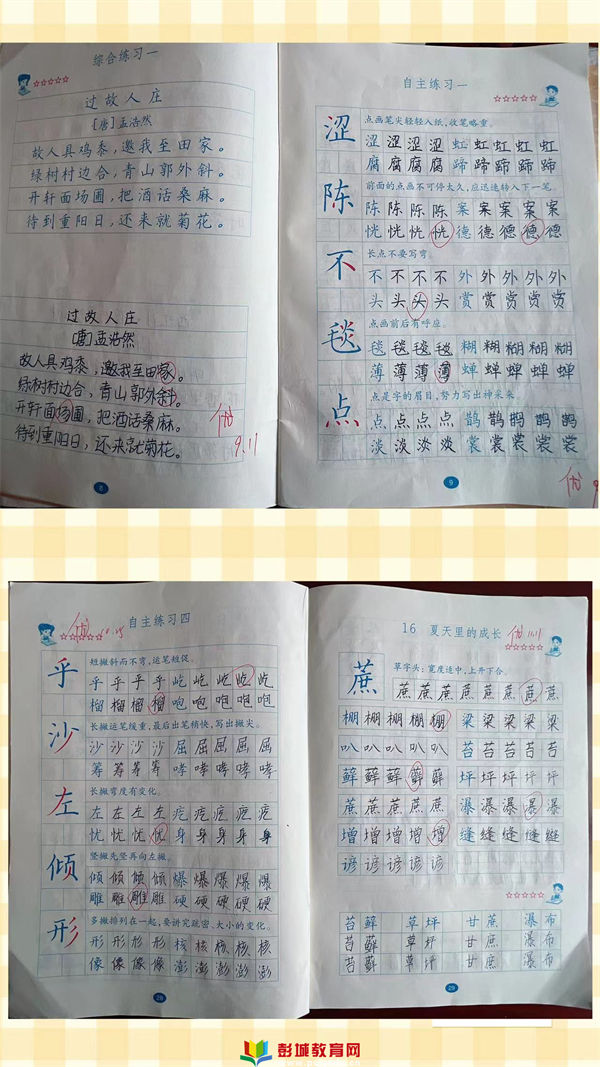 综合练习一
过故人庄
[唐]孟浩然
故人具鸡黍,邀我至田家。
绿树村边合,青山郭外斜。
开轩面场圃,把酒话桑麻。
待到重阳日,还来就菊花。
过故人庄
[唐]孟浩然
故人具鸡黍,邀我至田家。
绿树村边合,青山郭外斜。
开轩面场圃,把酒话桑麻。
待到重阳日,还来就菊花。
优
9.11
8
自主练习一
涩
点画笔尖轻轻入纸,收笔略重。
涩涩涩涩虹虹虹虹
腐腐腐腐蹄蹄蹄蹄
陈
前面的点画不可停太久,应迅速转入下一笔。
陈陈陈陈案案案案
恍恍恍恍德德德德
不
长点不要写弯。
不不不不外外外外
头头头头赏赏赏赏
毯
点画前后有呼应。
毯毯毯毯糊糊糊糊
薄薄薄薄蝉蝉蝉蝉
点
点是字的眉目,努力写出神采来。
点点点点鹊鹊鹊鹊
淡淡淡淡裳裳裳裳
优
9
自主练习四
优
乎
短撇斜而不弯,运笔短促。
乎乎乎乎屹屹屹屹屹
榴榴榴榴咆咆咆咆
沙
长撇运笔缓重,最后出笔稍快,写出撇尖。
沙沙沙沙屈屈屈屈
筹筹筹筹哮哮哮哮
左
长撇弯度有变化。
左左左左疙疙疙疙
忧忧忧忧身身身身
倾
竖撇先竖再向左撇。
倾倾倾倾爆爆爆爆
雕雕雕雕硬硬硬硬
形
多撇排列在一起,要讲究疏密、大小的变化。
形形形形核核核核
像像像像澎澎澎澎
28
16 夏天里的成长
优 11.11
蔗
草字头:宽度适中,上开下合。
蔗蔗蔗蔗蔗蔗蔗蔗
棚棚棚棚棚梁梁梁梁
叭叭叭叭叭苔苔苔苔苔
藓藓藓藓藓坪坪坪坪坪
蔗蔗蔗蔗蔗瀑瀑瀑瀑瀑
增增增增增缝缝缝缝缝
谚谚谚谚谚
苔藓 草坪 甘蔗 瀑布
苔藓 草坪 甘蔗 瀑布
苔藓 草坪 甘蔗 瀑布
29
彭城教育网